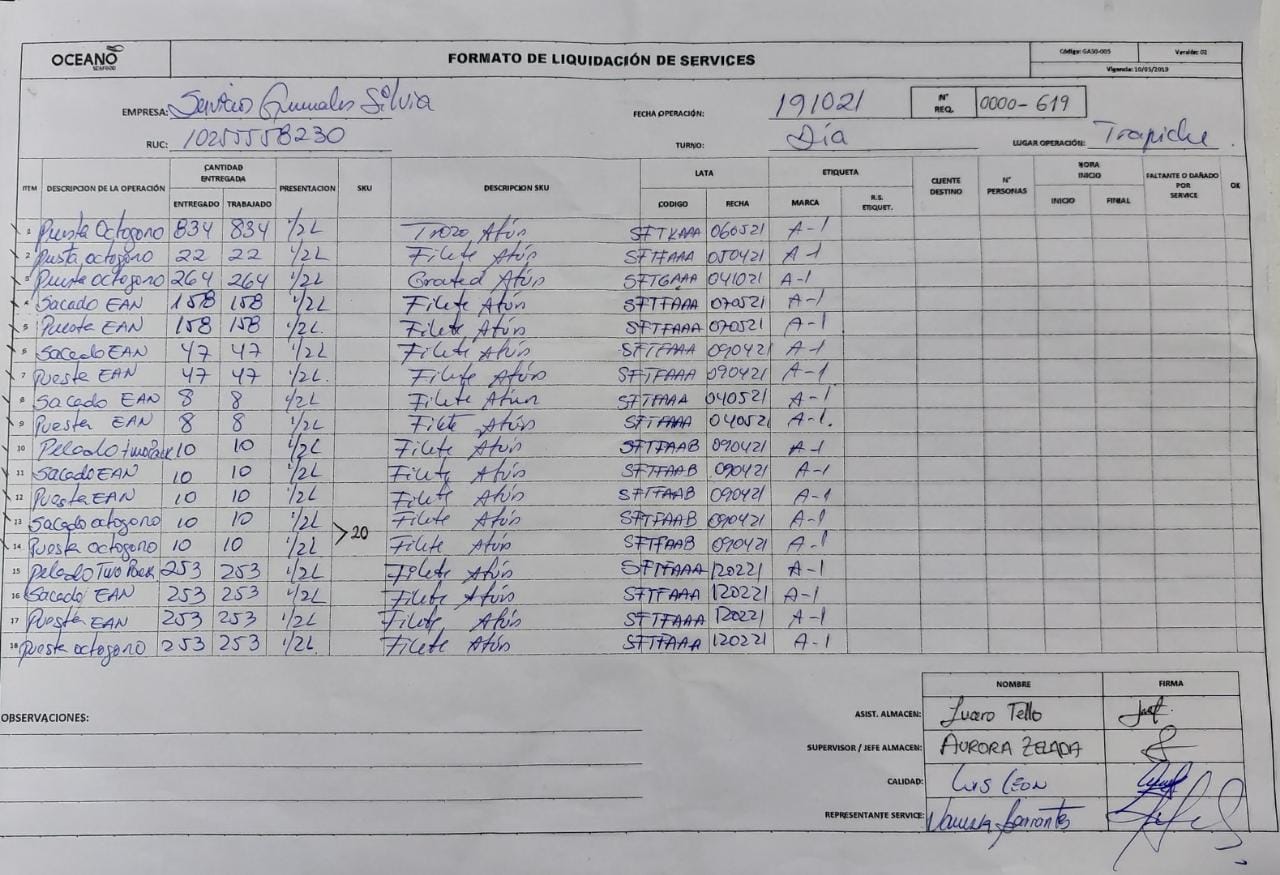 OCEANO
SEAFOOD
FORMATO DE LIQUIDACIÓN DE SERVICES
Código: GA50-005 Versión: 02
Vigencia: 10/05/2019
EMPRESA: Servicio Silvia FECHA OPERACIÓN: 191021 N° REQ. 0000-619
RUC: 10255558230 TURNO: Día LUGAR OPERACIÓN: Trapiche
ITEM DESCRIPCION DE LA OPERACIÓN CANTIDAD ENTREGADA PRESENTACION SKU DESCRIPCION SKU LATA ETIQUETA CLIENTE DESTINO N° PERSONAS HORA INICIO FALTANTE O DAÑADO POR SERVICE OK
ENTREGADO TRABAJADO CODIGO FECHA MARCA R.S. ETIQUET. INICIO FINAL
1 Puesta Octogono 834 834 1/2L Trozo Atún SFTKAAA 060521 A-1
2 Puesta octogono 22 22 1/2L Filete Atún SFTFAAA 050421 A-1
3 Puesta octogono 264 264 1/2L Grated Atún SFTGAAA 041021 A-1
4 Sacado EAN 158 158 1/2L Filete Atún SFTFAAA 070521 A-1
5 Puesta EAN 158 158 1/2L. Filete Atún SFTFAAA 070521 A-1
6 Sacado EAN 47 47 1/2L Filete Atún SFTFAAA 090421 A-1
7 Puesta EAN 47 47 1/2L. Filete Atún SFTFAAA 090421 A-1
8 Sacado EAN 8 8 1/2L Filete Atún SFTFAAA 040521 A-1
9 Puesta EAN 8 8 1/2L Filete Atún SFTFAAA 040521 A-1.
10 Pelado twoPack 10 10 1/2L Filete Atún SFTFAAB 090421 A-1
11 Sacado EAN 10 10 1/2L Filete Atún SFTFAAB 090421 A-1
12 Puesta EAN 10 10 1/2L Filete Atún SFTFAAB 090421 A-1
13 Sacado octogono 10 10 1/2L >20 Filete Atún SFTFAAB 090421 A-1
14 Puesta octogono 10 10 1/2L Filete Atún SFTFAAB 090421 A-1
15 Pelado Two Pack 253 253 1/2L Filete Atún SFTFAAA 120221 A-1
16 Sacado EAN 253 253 1/2L Filete Atún SFTFAAA 120221 A-1
17 Puesta EAN 253 253 1/2L Filete Atún SFTFAAA 120221 A-1
18 Puesta octogono 253 253 1/2L. Filete Atún SFTFAAA 120221 A-1
NOMBRE FIRMA
OBSERVACIONES: ASIST. ALMACEN: Tello
SUPERVISOR / JEFE ALMACEN: AURORA ZELADA
CALIDAD: LUIS LEON
REPRESENTANTE SERVICE: Vanessa Barrantes